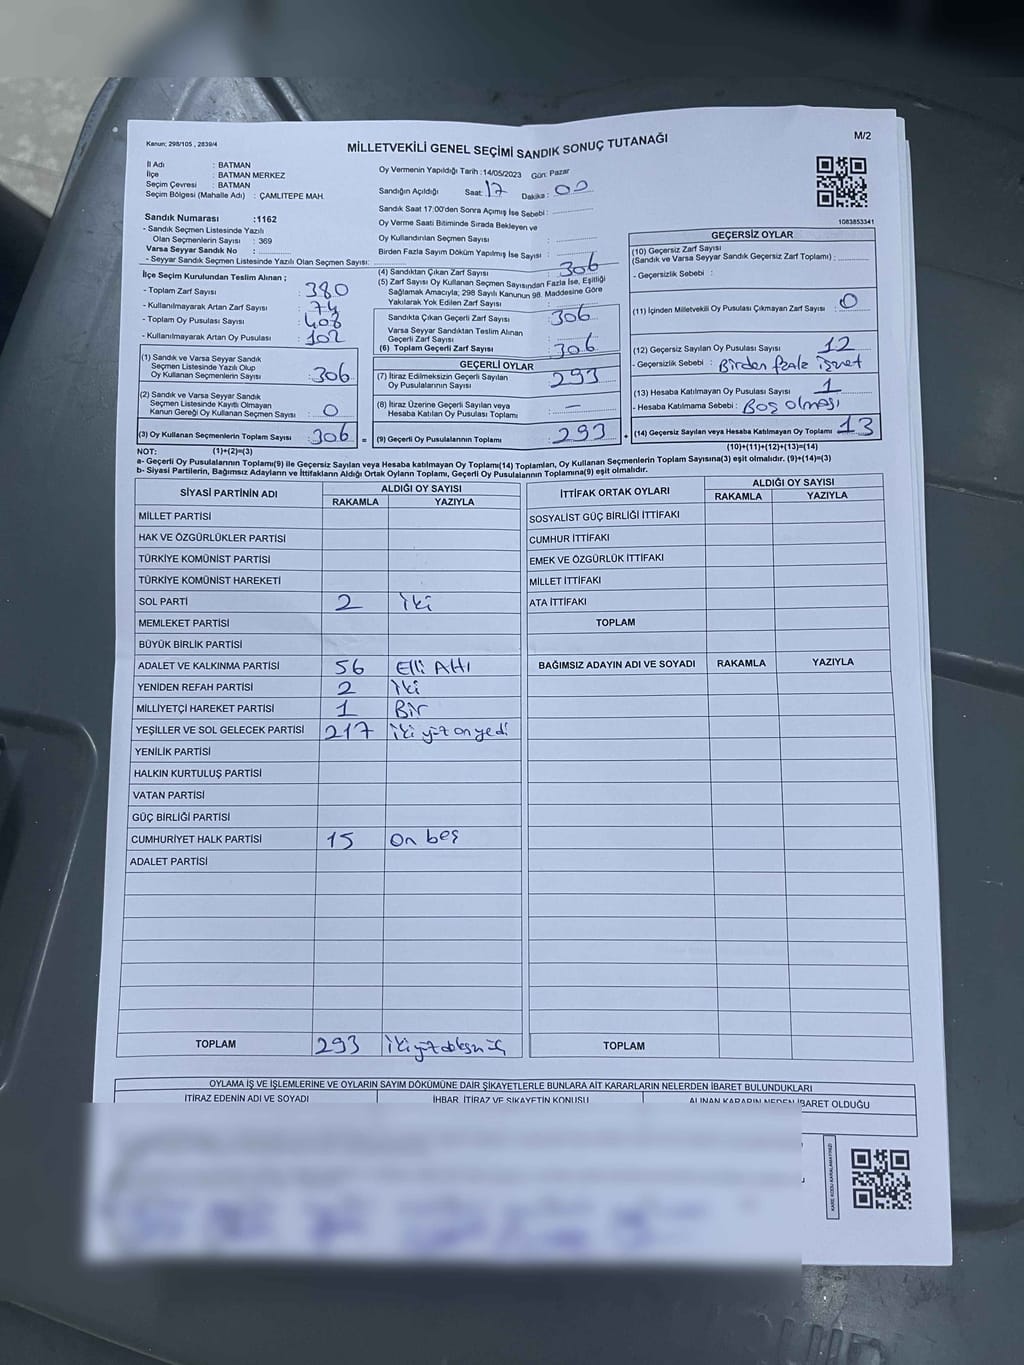 Kanun; 298/105 , 2839/4
MİLLETVEKİLİ GENEL SEÇİMİ SANDIK SONUÇ TUTANAĞI
M/2
İl Adı : BATMAN
İlçe : BATMAN MERKEZ
Seçim Çevresi : BATMAN
Seçim Bölgesi (Mahalle Adı) : ÇAMLITEPE MAH.
Sandık Numarası :1162
- Sandık Seçmen Listesinde Yazılı
Olan Seçmenlerin Sayısı : 369
Varsa Seyyar Sandık No :
- Seyyar Sandık Seçmen Listesinde Yazılı Olan Seçmen Sayısı:
İlçe Seçim Kurulundan Teslim Alınan ;
- Toplam Zarf Sayısı : 380
- Kullanılmayarak Artan Zarf Sayısı : 74
- Toplam Oy Pusulası Sayısı : 408
- Kullanılmayarak Artan Oy Pusulası : 102
(1) Sandık ve Varsa Seyyar Sandık
Seçmen Listesinde Yazılı Olup
Oy Kullanan Seçmenlerin Sayısı : 306
(2) Sandık ve Varsa Seyyar Sandık
Seçmen Listesinde Kayıtlı Olmayan
Kanun Gereği Oy Kullanan Seçmen Sayısı : 0
(3) Oy Kullanan Seçmenlerin Toplam Sayısı : 306 =
Oy Vermenin Yapıldığı Tarih :14/05/2023 Gün: Pazar
Sandığın Açıldığı Saat: 17 Dakika: 00
Sandık Saat 17:00'den Sonra Açımış İse Sebebi :
Oy Verme Saati Bitiminde Sırada Bekleyen ve
Oy Kullandırılan Seçmen Sayısı :
Birden Fazla Sayım Döküm Yapılmış İse Sayısı :
(4) Sandıktan Çıkan Zarf Sayısı : 306
(5) Zarf Sayısı Oy Kullanan Seçmen Sayısından Fazla İse, Eşitliği
Sağlamak Amacıyla; 298 Sayılı Kanunun 98. Maddesine Göre
Yakılarak Yok Edilen Zarf Sayısı :
Sandıkta Çıkan Geçerli Zarf Sayısı : 306
Varsa Seyyar Sandıktan Teslim Alınan
Geçerli Zarf Sayısı :
(6) Toplam Geçerli Zarf Sayısı : 306
GEÇERLİ OYLAR
(7) İtiraz Edilmeksizin Geçerli Sayılan
Oy Pusulalarının Sayısı : 293
(8) İtiraz Üzerine Geçerli Sayılan veya
Hesaba Katılan Oy Pusulası Toplamı : –
(9) Geçerli Oy Pusulalarının Toplamı : 293 +
1083853341
GEÇERSİZ OYLAR
(10) Geçersiz Zarf Sayısı
(Sandık ve Varsa Seyyar Sandık Geçersiz Zarf Toplamı) :
- Geçersizlik Sebebi :
(11) İçinden Milletvekili Oy Pusulası Çıkmayan Zarf Sayısı : 0
(12) Geçersiz Sayılan Oy Pusulası Sayısı : 12
- Geçersizlik Sebebi : Birden fazla işaret
(13) Hesaba Katılmayan Oy Pusulası Sayısı : 1
- Hesaba Katılmama Sebebi : Boş olması
(14) Geçersiz Sayılan veya Hesaba Katılmayan Oy Toplamı : 13
NOT: (1)+(2)=(3)
(10)+(11)+(12)+(13)=(14)
a- Geçerli Oy Pusulalarının Toplamı(9) ile Geçersiz Sayılan veya Hesaba katılmayan Oy Toplamı(14) Toplamları, Oy Kullanan Seçmenlerin Toplam Sayısına(3) eşit olmalıdır. (9)+(14)=(3)
b- Siyasi Partilerin, Bağımsız Adayların ve İttifakların Aldığı Ortak Oyların Toplamı, Geçerli Oy Pusulalarının Toplamına(9) eşit olmalıdır.
SİYASİ PARTİNİN ADI ALDIĞI OY SAYISI
RAKAMLA YAZIYLA
MİLLET PARTİSİ
HAK VE ÖZGÜRLÜKLER PARTİSİ
TÜRKİYE KOMÜNİST PARTİSİ
TÜRKİYE KOMÜNİST HAREKETİ
SOL PARTİ 2 iki
MEMLEKET PARTİSİ
BÜYÜK BİRLİK PARTİSİ
ADALET VE KALKINMA PARTİSİ 56 Elli Altı
YENİDEN REFAH PARTİSİ 2 iki
MİLLİYETÇİ HAREKET PARTİSİ 1 Bir
YEŞİLLER VE SOL GELECEK PARTİSİ 217 iki yüz on yedi
YENİLİK PARTİSİ
HALKIN KURTULUŞ PARTİSİ
VATAN PARTİSİ
GÜÇ BİRLİĞİ PARTİSİ
CUMHURİYET HALK PARTİSİ 15 on beş
ADALET PARTİSİ
TOPLAM 293 iki yüz doksan üç
İTTİFAK ORTAK OYLARI ALDIĞI OY SAYISI
RAKAMLA YAZIYLA
SOSYALİST GÜÇ BİRLİĞİ İTTİFAKI
CUMHUR İTTİFAKI
EMEK VE ÖZGÜRLÜK İTTİFAKI
MİLLET İTTİFAKI
ATA İTTİFAKI
TOPLAM
BAĞIMSIZ ADAYIN ADI VE SOYADI RAKAMLA YAZIYLA
TOPLAM
OYLAMA İŞ VE İŞLEMLERİNE VE OYLARIN SAYIM DÖKÜMÜNE DAİR ŞİKAYETLERLE BUNLARA AİT KARARLARIN NELERDEN İBARET BULUNDUKLARI
İTİRAZ EDENİN ADI VE SOYADI İHBAR, İTİRAZ VE ŞİKAYETİN KONUSU ALINAN KARARIN NEDEN İBARET OLDUĞU
KARE KODU KARALAMAYINIZ!